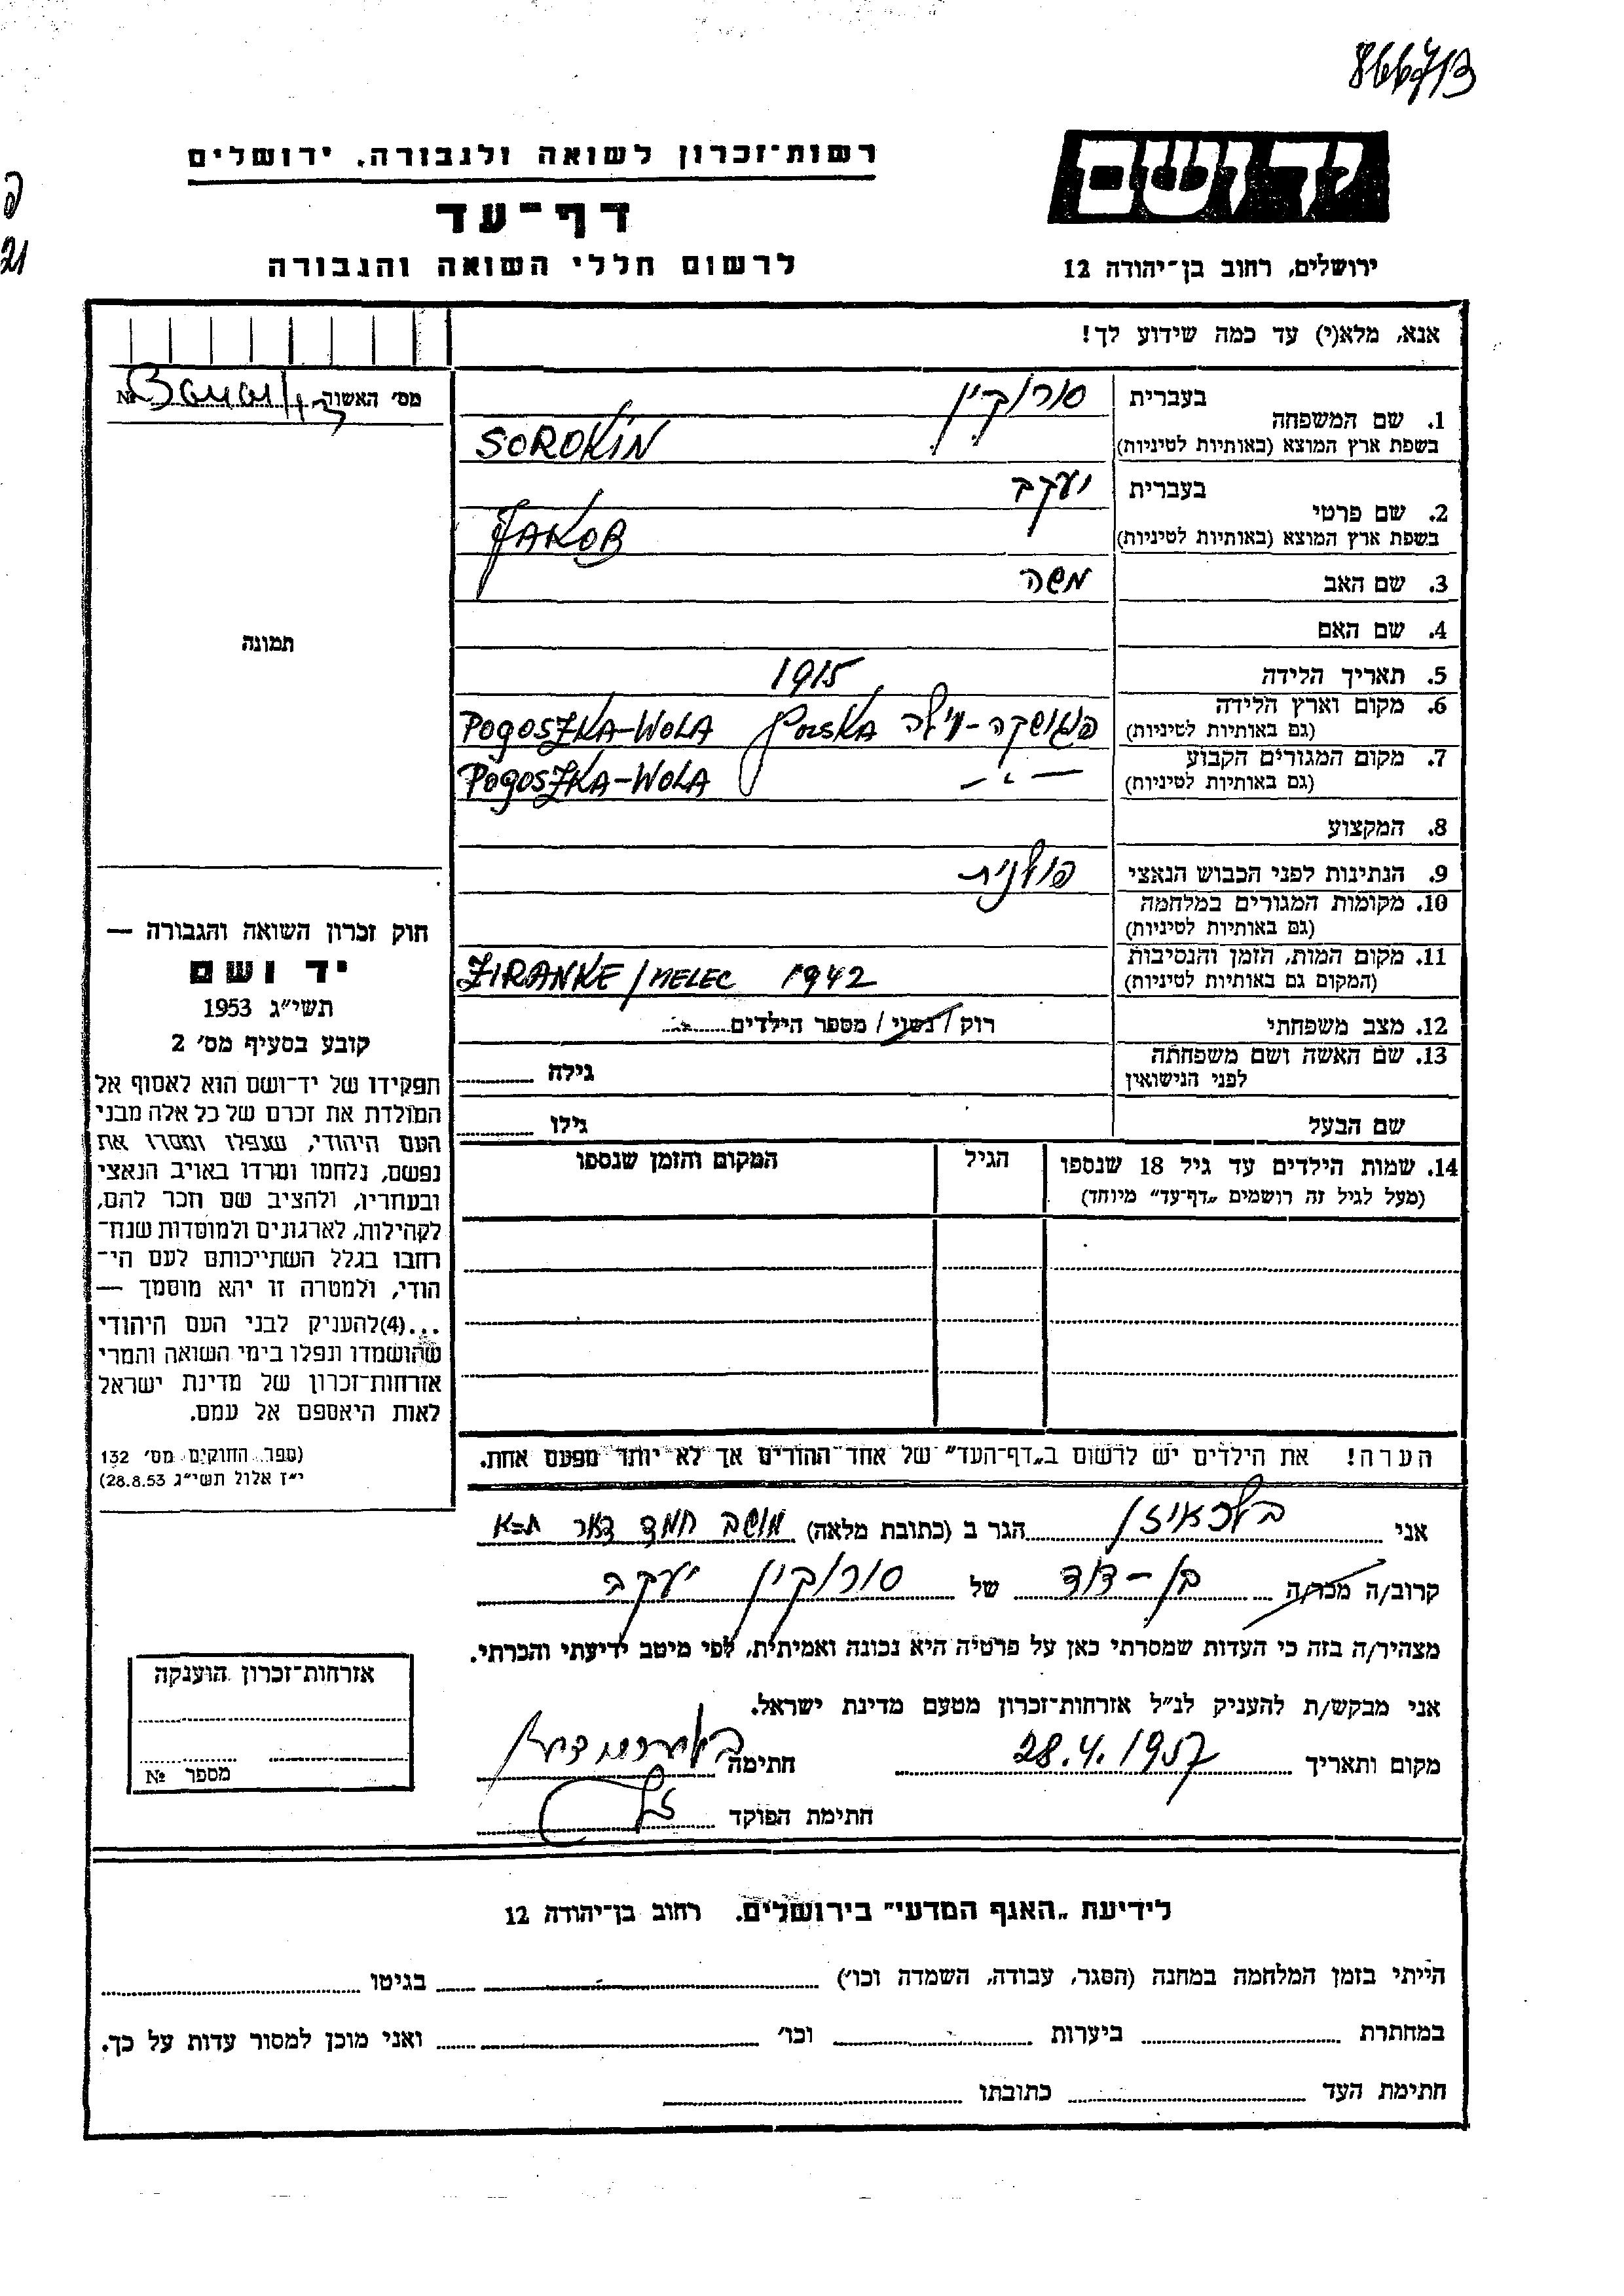 866713
רשות־זכרון לשואה ולגבורה, ירושלים
ידושם
דף־עד
ירושלים, רחוב בן־יהודה 12
לרשום חללי השואה והגבורה
אנא, מלא(י) עד כמה שידוע לך!
מס׳ האשוה № 
בעברית סורוקין
1. שם המשפחה
בשפת ארץ המוצא (באותיות לטיניות) SOROKIN
בעברית יעקב
2. שם פרטי
בשפת ארץ המוצא (באותיות לטיניות) JAKOB
3. שם האב משה
4. שם האם
5. תאריך הלידה 1915
6. מקום וארץ הלידה
(גם באותיות לטיניות) POGOSZKA-WOLA POLSKA
7. מקום המגורים הקבוע
(גם באותיות לטיניות) — " — POGOSZKA-WOLA
8. המקצוע
9. הנתינות לפני הכבוש הנאצי פולנית
10. מקומות המגורים במלחמה
(גם באותיות לטיניות)
11. מקום המות, הזמן והנסיבות
(המקום גם באותיות לטיניות) ZIRANKE/MELEC 1942
12. מצב משפחתי רוק / נשוי / מספר הילדים
13. שם האשה ושם משפחתה
לפני הנישואין גילה
שם הבעל גילו
14. שמות הילדים עד גיל 18 שנספו
(מעל לגיל זה רושמים „דף־עד״ מיוחד)
הגיל
המקום והזמן שנספו
תמונה
חוק זכרון השואה והגבורה —
יד ושם
תשי״ג 1953
קובע בסעיף מס׳ 2
תפקידו של יד־ושם הוא לאסוף אל
המולדת את זכרם של כל אלה מבני
העם היהודי, שנפלו ומסרו את
נפשם, נלחמו ומרדו באויב הנאצי
ובעוזריו, ולהציב שם וזכר להם,
לקהילות, לארגונים ולמוסדות שנח־
רחבו בגלל השתייכותם לעם הי־
הודי, ולמטרה זו יהא מוסמך —
...(4)להעניק לבני העם היהודי
שהושמדו ונפלו בימי השואה והמרי
אזרחות־זכרון של מדינת ישראל
לאות היאספם אל עמם.
(ספר החוקים מס׳ 132
י״ז אלול תשי״ג 28.8.53)
הערה! את הילדים יש לרשום ב„דף־העד״ של אחד ההורים אך לא יותר מפעם אחת.
אני הגר ב (כתובת מלאה) מושב חמד דאר ת=א
קרוב/ה מכר/ה בן-דוד של סורוקין יעקב
מצהיר/ה בזה כי העדות שמסרתי כאן על פרטיה היא נכונה ואמיתית, לפי מיטב ידיעתי והכרתי.
אני מבקש/ת להעניק לנ״ל אזרחות־זכרון מטעם מדינת ישראל.
מקום ותאריך 28.4.1957 חתימה
חתימת הפוקד
אזרחות־זכרון הוענקה
מספר №
לידיעת „האגף המדעי״ בירושלים. רחוב בן־יהודה 12
הייתי בזמן המלחמה במחנה (הסגר, עבודה, השמדה וכו׳) בגיטו
במחתרת ביערות וכו׳ ואני מוכן למסור עדות על כך.
חתימת העד כתובתו